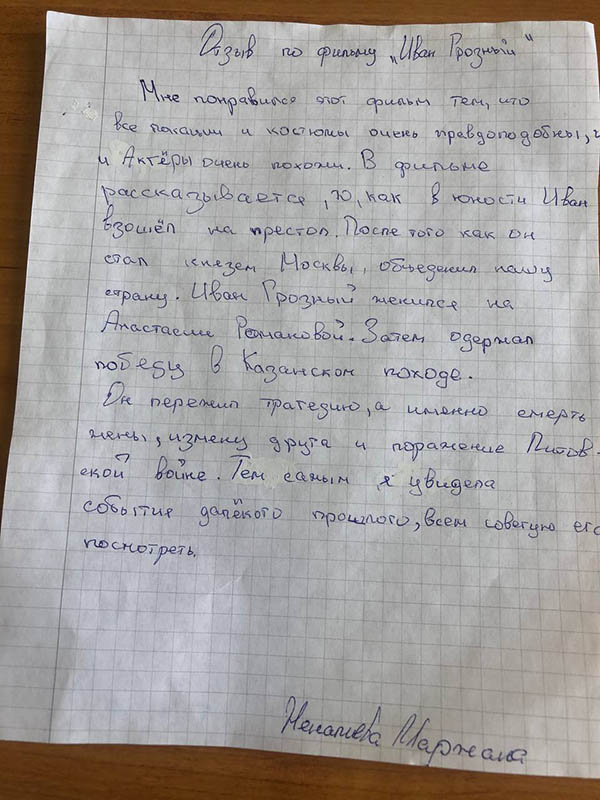 Отзыв по фильму „Иван Грозный"
Мне понравился этот фильм тем, что
все локации и костюмы очень правдоподобны,
и Актёры очень похожи. В фильме
рассказывается, то, как в юности Иван
взошёл на престол. После того как он
стал князем Москвы, объеденил нашу
страну. Иван Грозный женился на
Анастасии Романовой. Затем одержал
победу в Казанском походе.
Он пережил трагедию, а именно смерть
жены, измену друга и поражение Литов-
ской войне. Тем самым я увидела
события далёкого прошлого, всем советую его
посмотреть.
Маржана